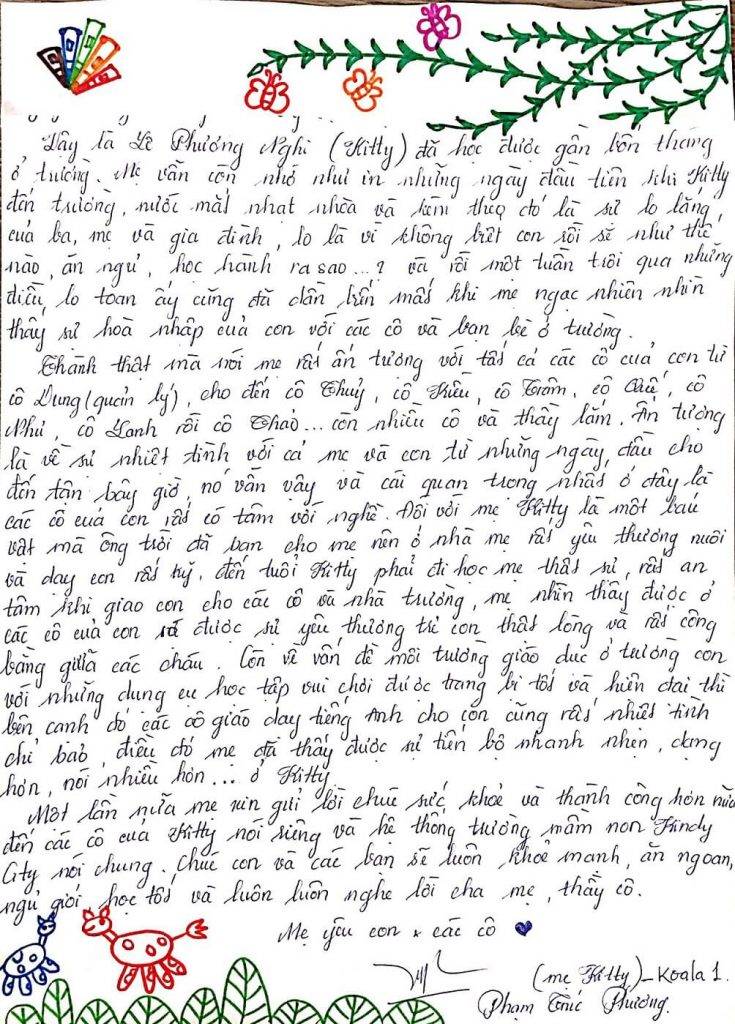 Đây là Lê Phương Nghi (Kitty) đã học được gần bốn tháng
ở trường. Mẹ vẫn còn nhớ như in những ngày đầu tiên khi Kitty
đến trường, nước mắt nhạt nhòa và kèm theo đó là sự lo lắng,
của ba, mẹ và gia đình, lo là vì không biết con rồi sẽ như thế
nào, ăn ngủ, học hành ra sao...? và rồi một tuần trôi qua những
điều lo toan ấy cũng đã dần biến mất khi mẹ ngạc nhiên nhìn
thấy sự hoà nhập của con với các cô và bạn bè ở trường.
Thành thật mà nói mẹ rất ấn tượng với tất cả các cô của con từ
cô Dung (quản lý), cho đến cô Thuỷ, cô Kiều, cô Trâm, cô cô
Như, cô Lanh rồi cô Thảo... còn nhiều cô và thầy lắm. Ấn tượng
là về sự nhiệt tình với cả mẹ và con từ những ngày, đầu cho
đến tận bây giờ, nó vẫn vậy và cái quan trọng nhất ở đây là
các cô của con rất có tâm với nghề. Đối với mẹ Kitty là một báu
vật mà ông trời đã ban cho mẹ nên ở nhà mẹ rất yêu thương nuôi
và dạy con rất kỹ. đến tuổi Kitty phải đi học mẹ thật sự, rất an
tâm khi giao con cho các cô và nhà trường, mẹ nhìn thấy được ở
các cô của con được sự yêu thương trẻ con thật lòng và rất công
bằng giữa các cháu. Còn về vấn đề môi trường giáo dục ở trường con
với những dụng cụ học tập vui chơi được trang bị tốt và hiện đại thì
bên cạnh đó các cô giáo dạy tiếng Anh cho con cũng rất nhiệt tình
chỉ bảo, điều đó mẹ đã thấy được sự tiến bộ nhanh nhẹn, dạng
hơn, nói nhiều hơn... ở Kitty
Một lần nữa mẹ xin gửi lời chúc sức khoẻ và thành công hơn nữa
đến các cô của Kitty nói riêng và hệ thống trường mầm non Kindy
City nói chung. Chúc con và các bạn sẽ luôn khoẻ mạnh, ăn ngoan,
ngủ giỏi, học tốt và luôn luôn nghe lời cha mẹ, thầy cô.
Mẹ yêu con & các cô
(mẹ Kitty)_Koala 1.
Phạm Phương.